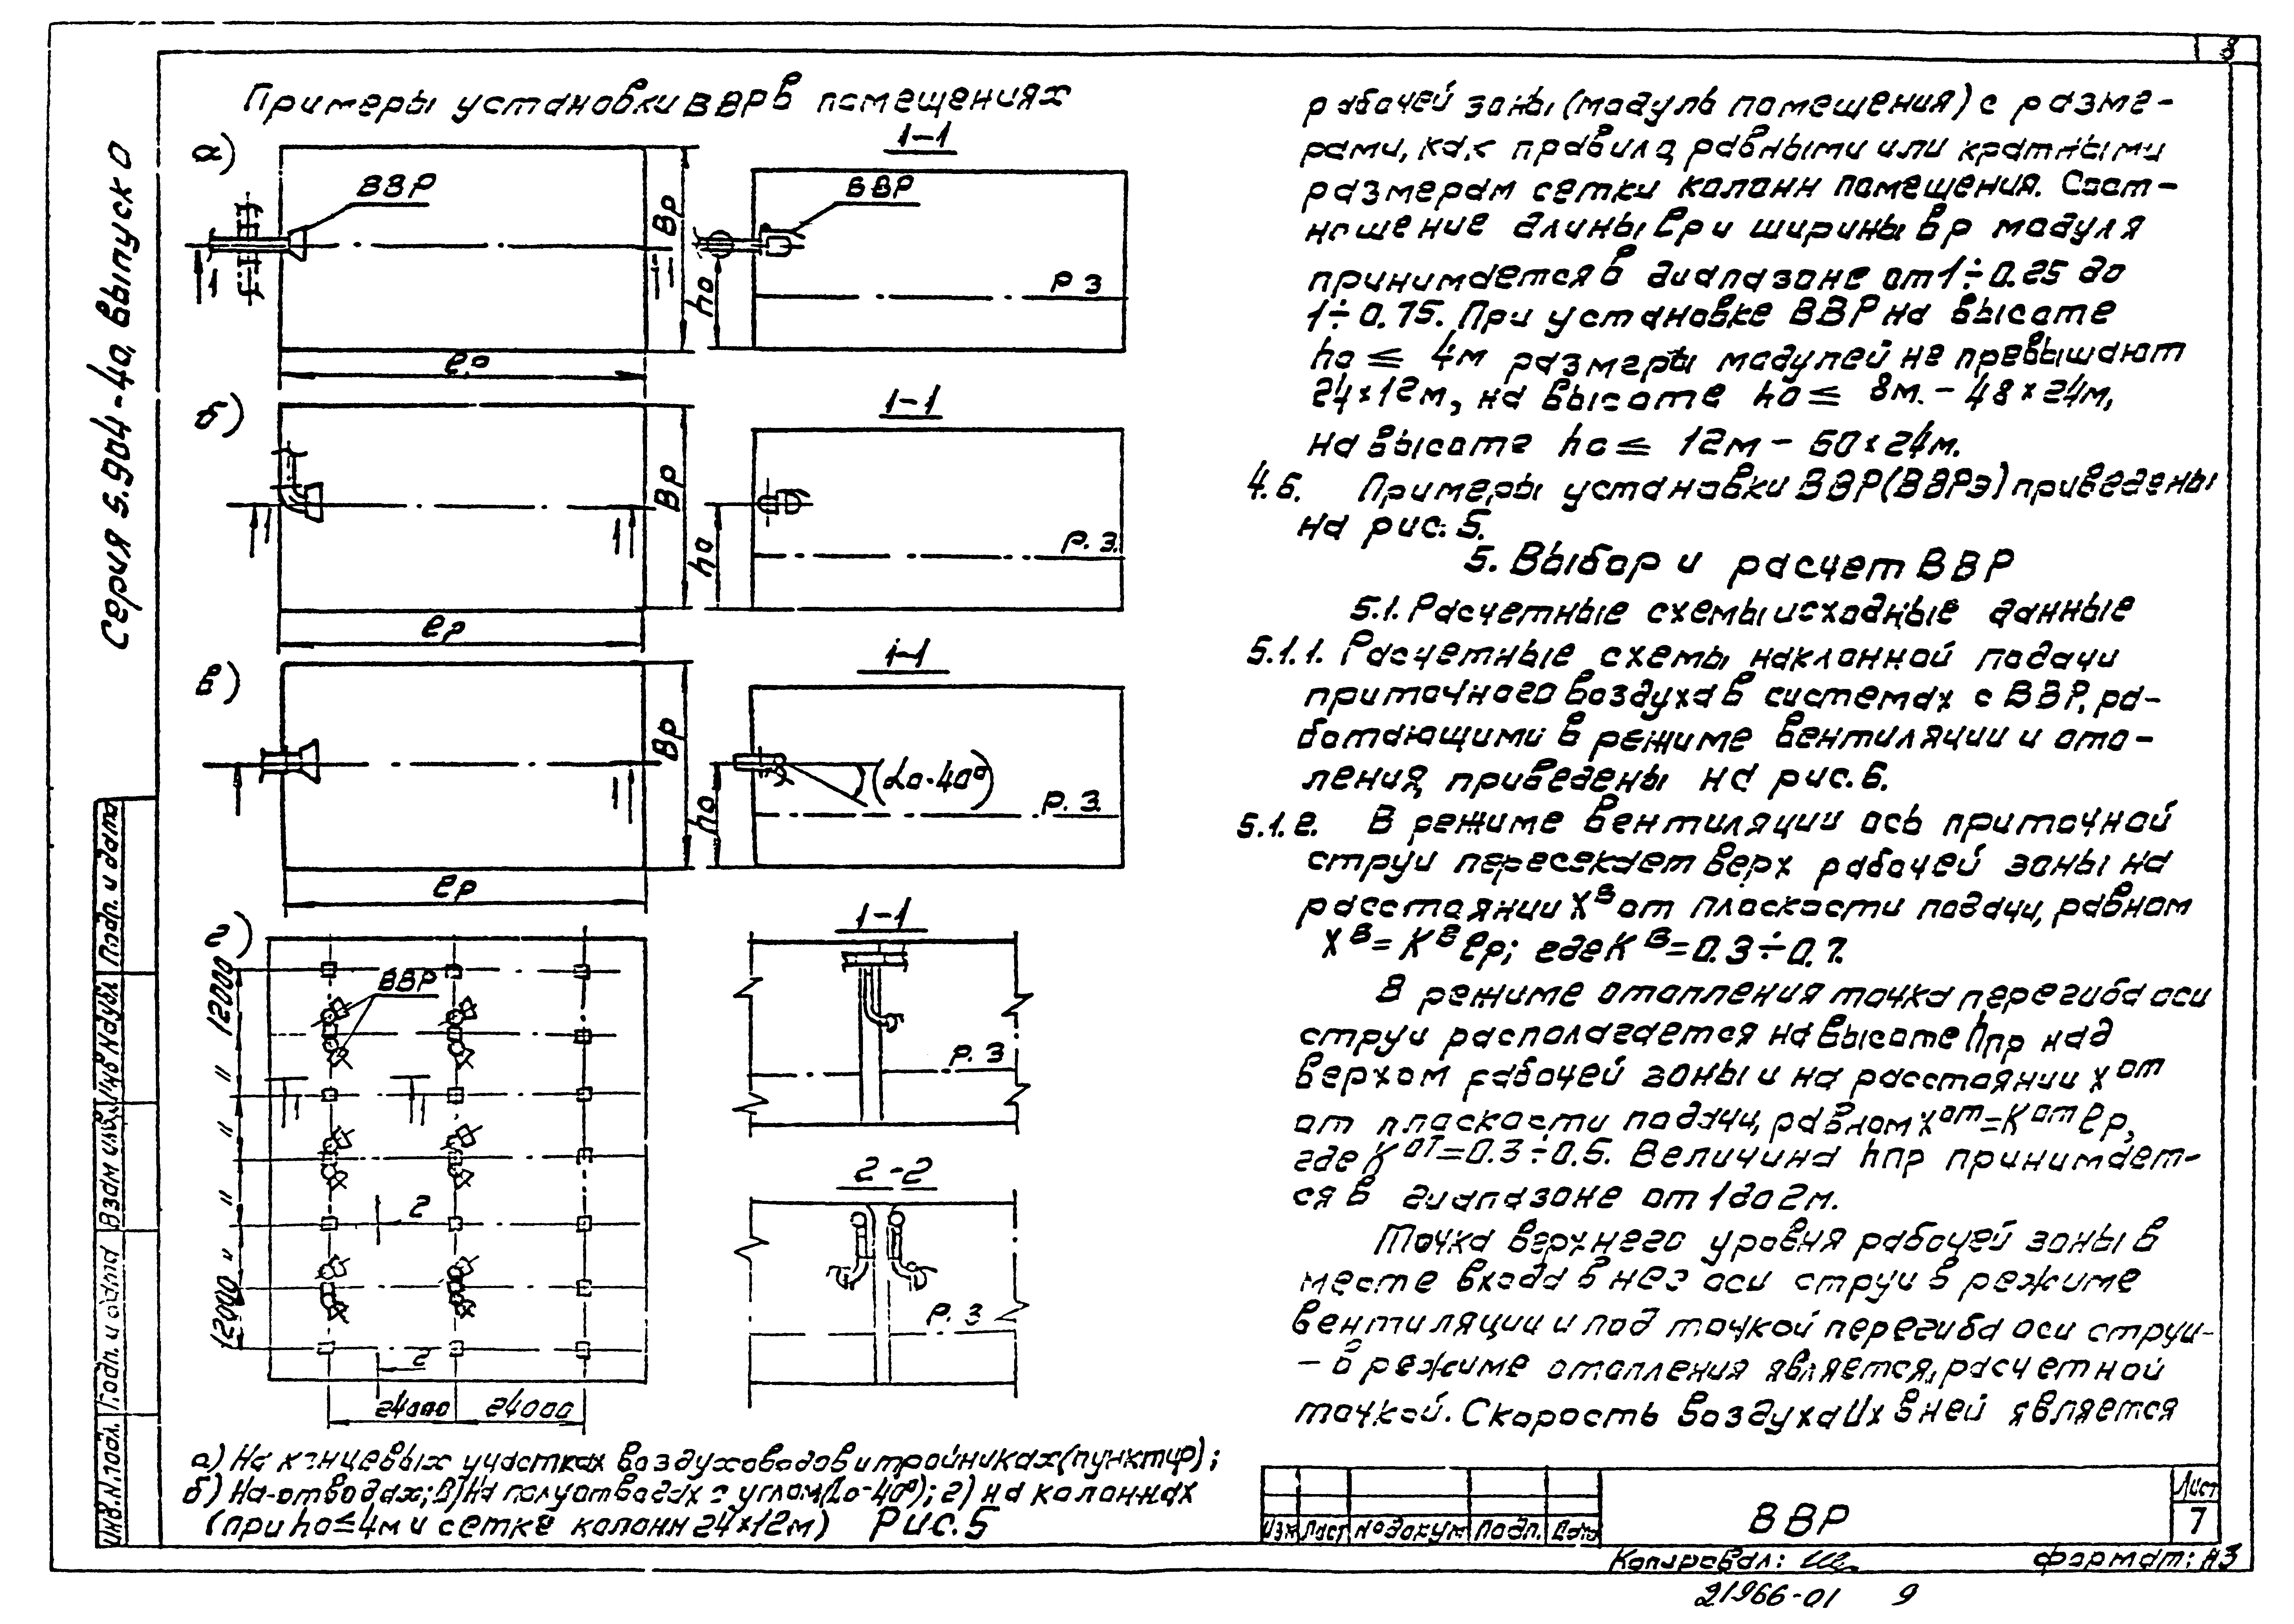 8
Серия 5.904-4а, выпуск 0
Примеры установки ВВР в помещениях
а)
ВВР
Вр
ℓр
1-1
ВВР
hо
Р.З
1
б)
Вр
ℓр
1-1
hо
Р.З.
в)
Вр
ℓр
1-1
hо
(αо-40°)
Р.З.
г)
12000
"
"
"
"
12000
ВВР
2
2
24000 24000
1-1
Р.З
2-2
Р.З
а) На концевых участках воздуховодов и тройниках (пунктир);
б) На отводах; в) На полуотводах с углом (αо-40°); г) на колоннах
(при hо≤4м и сетке колонн 24×12м) Рис.5
рабочей зоны (модуль помещения) с разме-
рами, как правило, равными или кратными
размерам сетки колонн помещения. Соот-
ношение длины ℓр и ширины Вр модуля
принимается в диапазоне от 1÷0.25 до
1÷0.75. При установке ВВР на высоте
hо ≤ 4м размеры модулей не превышают
24×12м, на высоте hо ≤ 8м. - 48×24м,
на высоте hо ≤ 12м - 60×24м.
4.6. Примеры установки ВВР (ВВРЭ) приведены
на рис. 5.
5. Выбор и расчет ВВР
5.1. Расчетные схемы исходные данные
5.1.1. Расчетные схемы наклонной подачи
приточного воздуха в системах с ВВР, ра-
ботающими в режиме вентиляции и ото-
ления, приведены на рис.6.
5.1.2. В режиме вентиляции ось приточной
струи пересекает верх рабочей зоны на
расстоянии Xᴮ от плоскости подачи, равном
Xᴮ = Kᴮℓр; где Kᴮ = 0.3÷0.7.
В режиме отопления точка перегиба оси
струи располагается на высоте hпр над
верхом рабочей зоны и на расстоянии X^от
от плоскости подачи, равном X^от=K^от ℓр,
где K^от=0.3÷0.5. Величина hпр принимает-
ся в диапазоне от 1 до 2м.
Точка верхнего уровня рабочей зоны в
месте входа в нее оси струи в режиме
вентиляции и под точкой перегиба оси струи-
- в режиме отопления является, расчетной
точкой. Скорость воздуха Uх в ней является
Инв.N подл. Подп. и дата Взам инв. Инв N дубл. Подп. и дата
Изм Лист N докум Подп. Дата
ВВР
Лист
7
Копировал:
формат: А3
21966-01 9